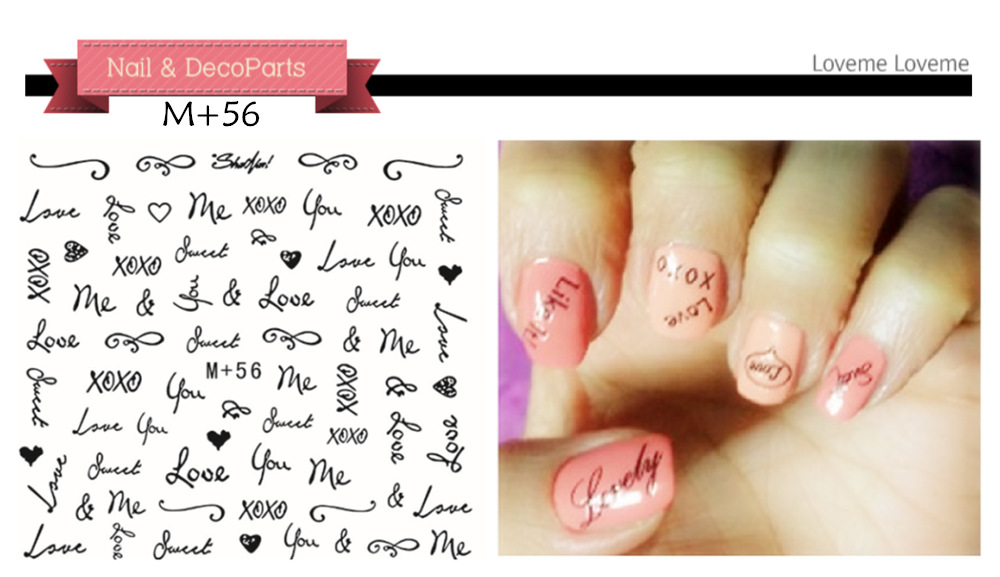 Nail & DecoParts
Loveme Loveme
M+56
Love Love Me XOXO You XOXO Sweet
XOXO XOXO Sweet Love You
Me & You & Love Sweet
Love Sweet & Me Love
Sweet XOXO You M+56 Me XOXO
Love You Sweet XOXO & Love Love
Love Sweet Love You Me
& Me XOXO & Love
Love Love Sweet You & Me
XOXO
Love
Love
Lovely